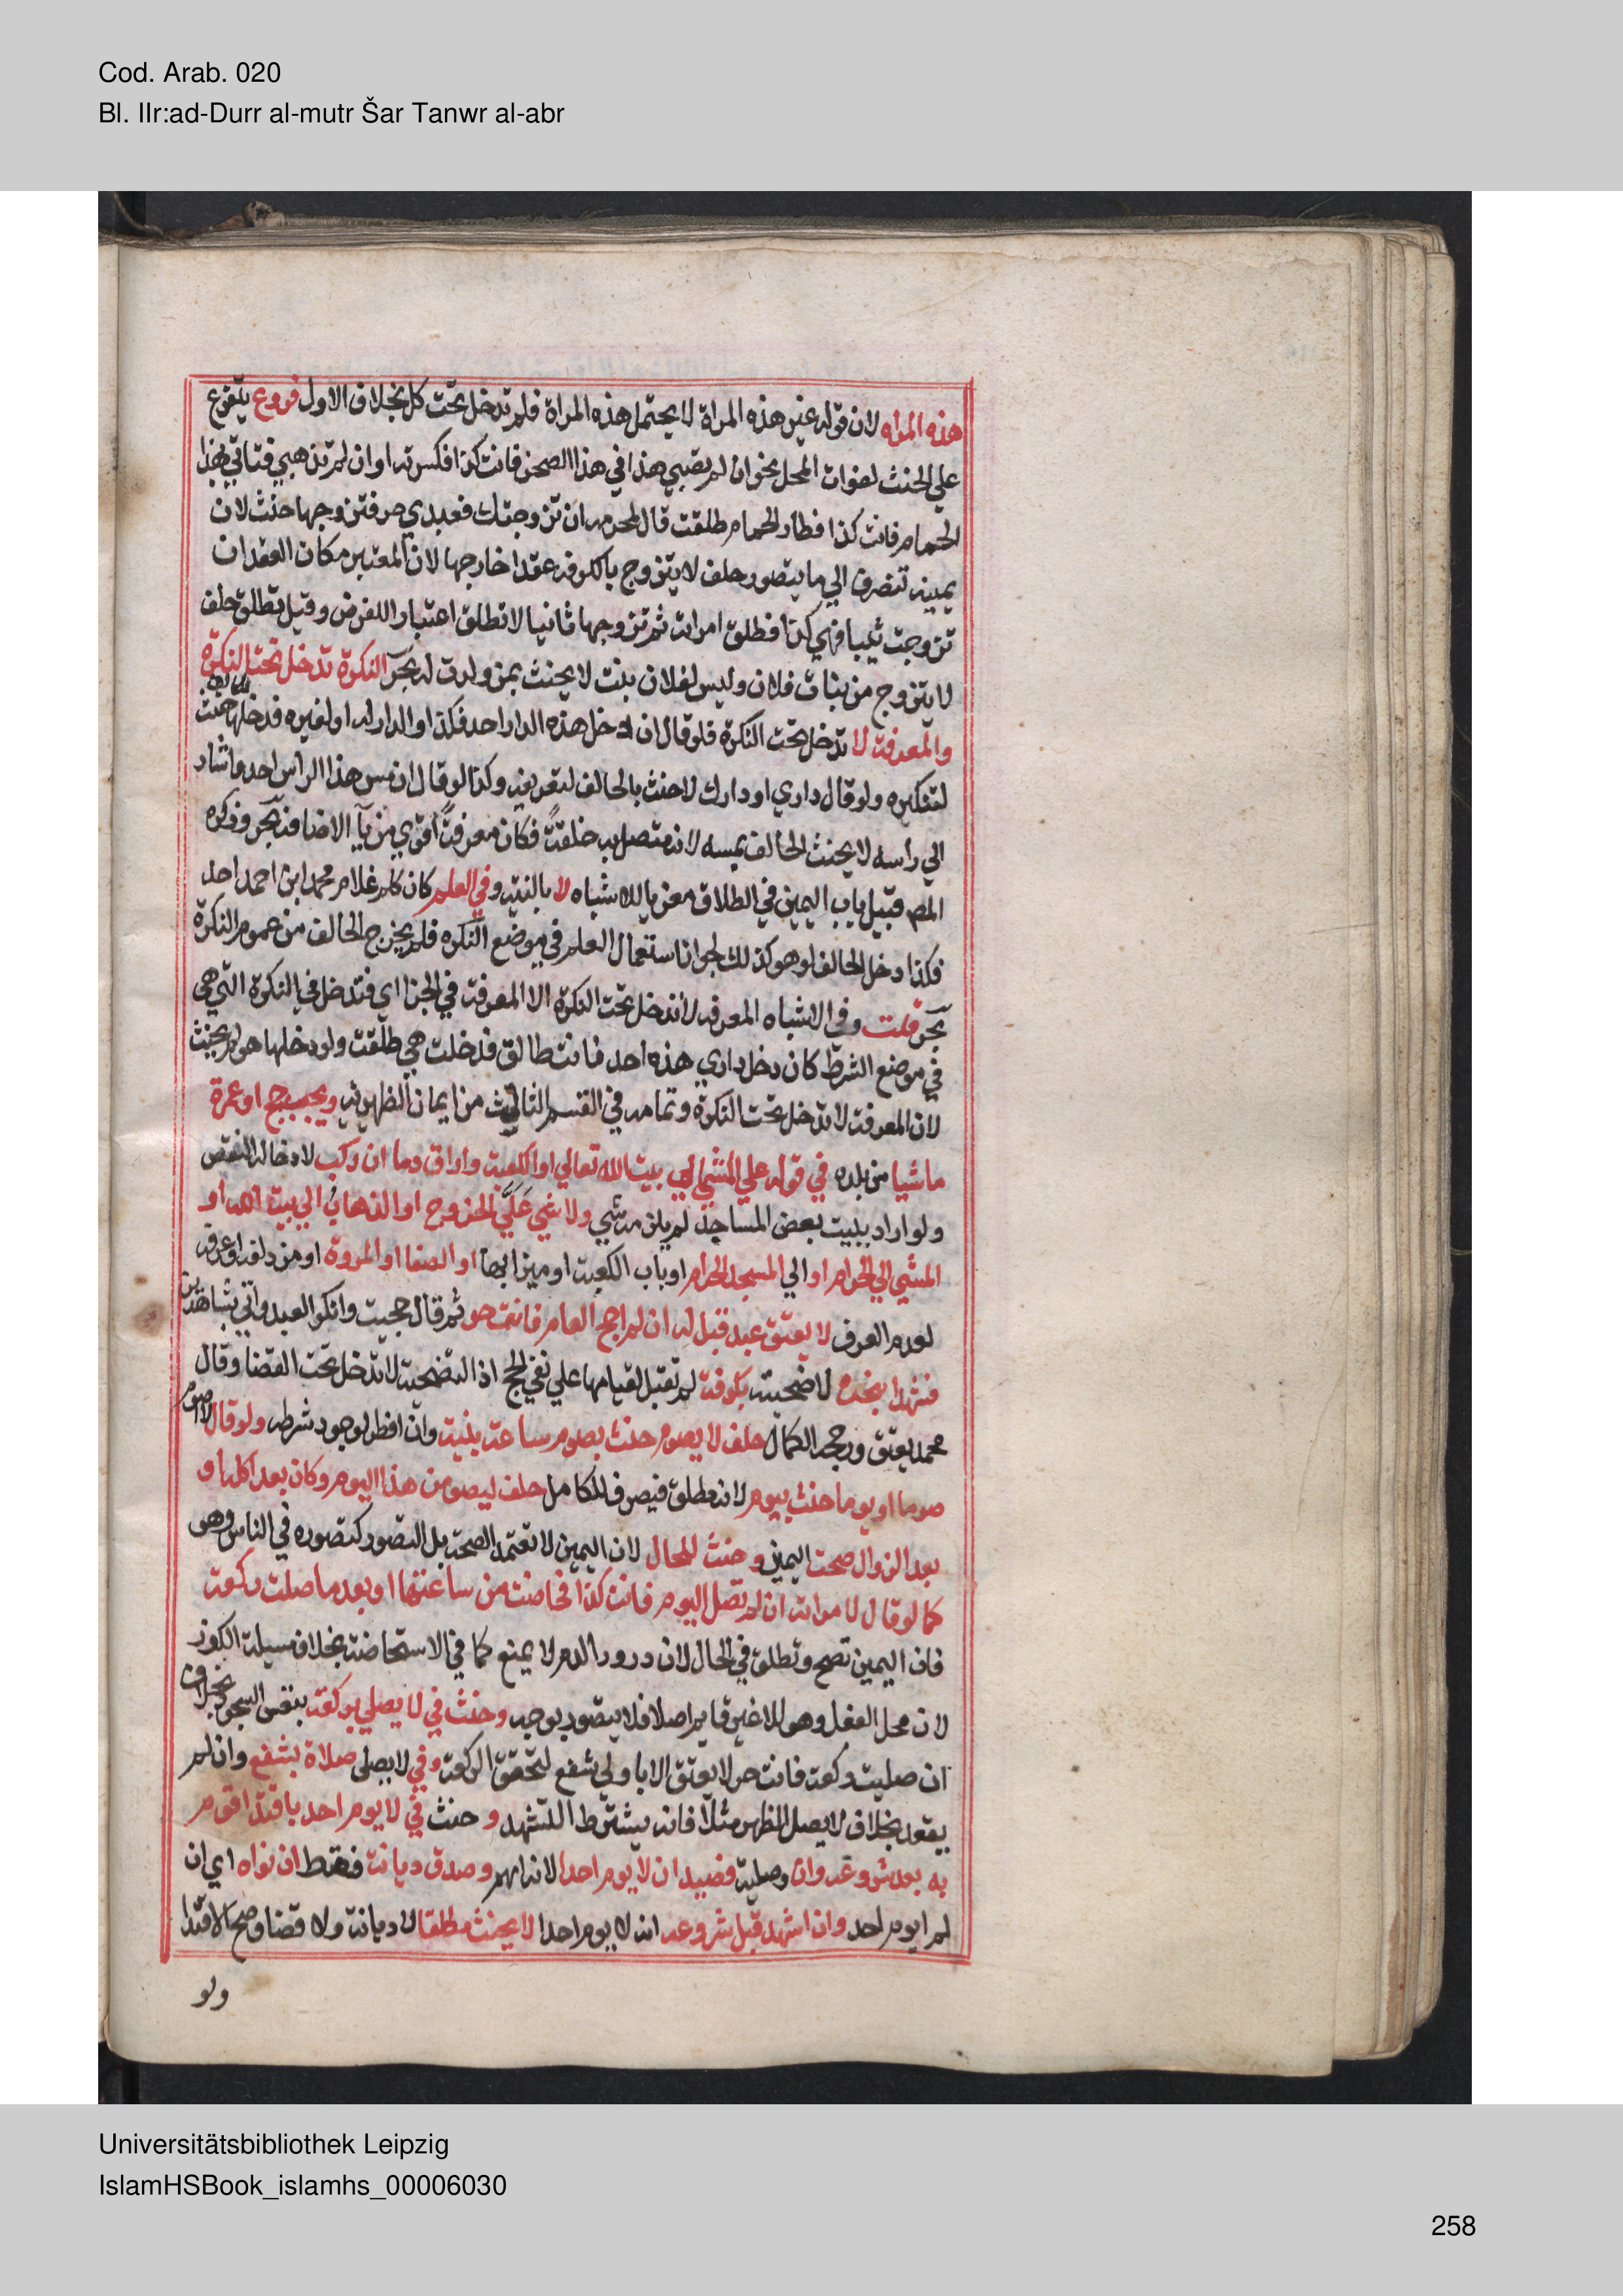 Cod. Arab. 020
Bl. IIr:ad-Durr al-mutr Šar Tanwr al-abr
هذه المراه لان قوله غير هذه المراة لا يحتمل هذه المراة فلم تدخل تحت كل بخلاف الاول فروع يتفرع
علي الحنث لفوات المحل نحو ان لم تصبي هذا في هذا الصحن فانت كذا فكسرته او ان لم تذهبي فتاتي بهذا
الحمام فانت كذا فطار الحمام طلقت قال لمحرمه ان تزوجتك فعبدي حر فتزوجها حنث لان
يمينه تنصرف الي ما يتصور حلف لا يتزوج بالكوفة عقد خارجها لان المعتبر مكان العقد ان
تزوجت ثيبا فهي كذا فطلق امراته ثم تزوجها ثانيا لا تطلق اعتبار اللغرض وقيل تطلق حلف
لا يتزوج من بنات فلان وليس لفلان بنت لا يحنث بمن ولدت له بحر النكرة تدخل تحت النكرة
والمعرفة لا تدخل تحت النكرة فلو قال ان دخل هذه الدار احد فكذا والدار له او لغيره فدخلها حنث
لتنكيره ولو قال داري او دارك لا حنث بالحالف لتعريفه وكذا لو قال ان مس هذا الراس احد واشار
الي راسه لا يحنث الحالف بمسه لانه متصل به خلقة فكان معرفة اقوي من يآ الاضافة بحر وذكره
المص قبيل باب اليمين في الطلاق معزيا للاشباه لا بالنية وفي العلم كان كلم غلام محمد ابن احمد احد
فكذا دخل الحالف لو هو كذلك لجواز استعمال العلم في موضع النكره فلم يخرج الحالف من عموم النكرة
بحر قلت وفي الاشباه المعرفه لا تدخل تحت النكرة الا المعرفة في الجزا اي فتدخل في النكرة التي هي
في موضع الشرط كان دخل داري هذه احد فانت طالق فدخلت هي طلقت ولو دخلها هو لم يحنث
لان المعرفة لا تدخل تحت النكرة وتمامه في القسم الثالث من ايمان الظهيريه ويجب حج او عمرة
ماشيا من بلده في قوله علي المشي الي بيت الله تعالي او الكعبة واراق دما ان ركب لادخاله النقص
ولو اراد ببيت بعض المساجد لم يلزمه شي ولا شي علي الخروج او الذهاب الي بيت الله او
المشي الي الحرام او الي المسجد الحرام او باب الكعبة او ميزابها او الصفا او المروة او مزدلفة او عرفة
لعدم العرف لا يعتق عبد قيل له ان لم احج العام فانت حر ثم قال حججت وانكر العبد واتي بشاهدين
فشهدا بنحره لاضحيته بكوفة لم تقبل لقيامها علي نفي الحج اذ التضحية لا تدخل تحت القضا وقال
محمد يعتق ورجحه الكمال حلف لا يصوم حنث بصوم ساعة بنية وان افطر لوجود شرطه ولو قال لا اصوم
صوما او يوما حنث بيوم لانه مطلق فيصرف للكامل حلف ليصومن هذا اليوم وكان بعد اكله او
بعد الزوال صحت اليمين وحنث للحال لان اليمين لا تعتمد الصحة بل التصور كتصوره في الناس وهو
كما لو قال لامراته ان لم تصل اليوم فانت كذا فحاضت من ساعتها او بعد ما صلت ركعة
فان اليمين تصح وتطلق في الحال لان درور الدم لا يمنع كما في الاستحاضة بخلاف مسيلة الكوز
لان محل الفعل وهو الماء غير قايم اصلا فلا يتصور بوجه وحنث في لا يصلي بركعة بنفس السجود بخلاف
ان صليت ركعة فانت حر لا يعتق الا باولي شفع لتحقق الركعة وفي لا يصلي صلاة بشفع وان لم
يقعد بخلاف لا يصل الظهر مثلا فانه يشترط التشهد وحنث في لا يوم احد باقتدا قوم
به بعد شروعه وان وصلية قصد ان لا يوم احدا لانه امهم وصدق ديانة فقط ان نواه اي ان
لم ايوم احد وان اشهد قبل شروعه انه لا يوم احدا لا يحنث مطلقا لا ديانة ولا قضا وصح الاقتدا
ولو
Universitätsbibliothek Leipzig
IslamHSBook_islamhs_00006030
258